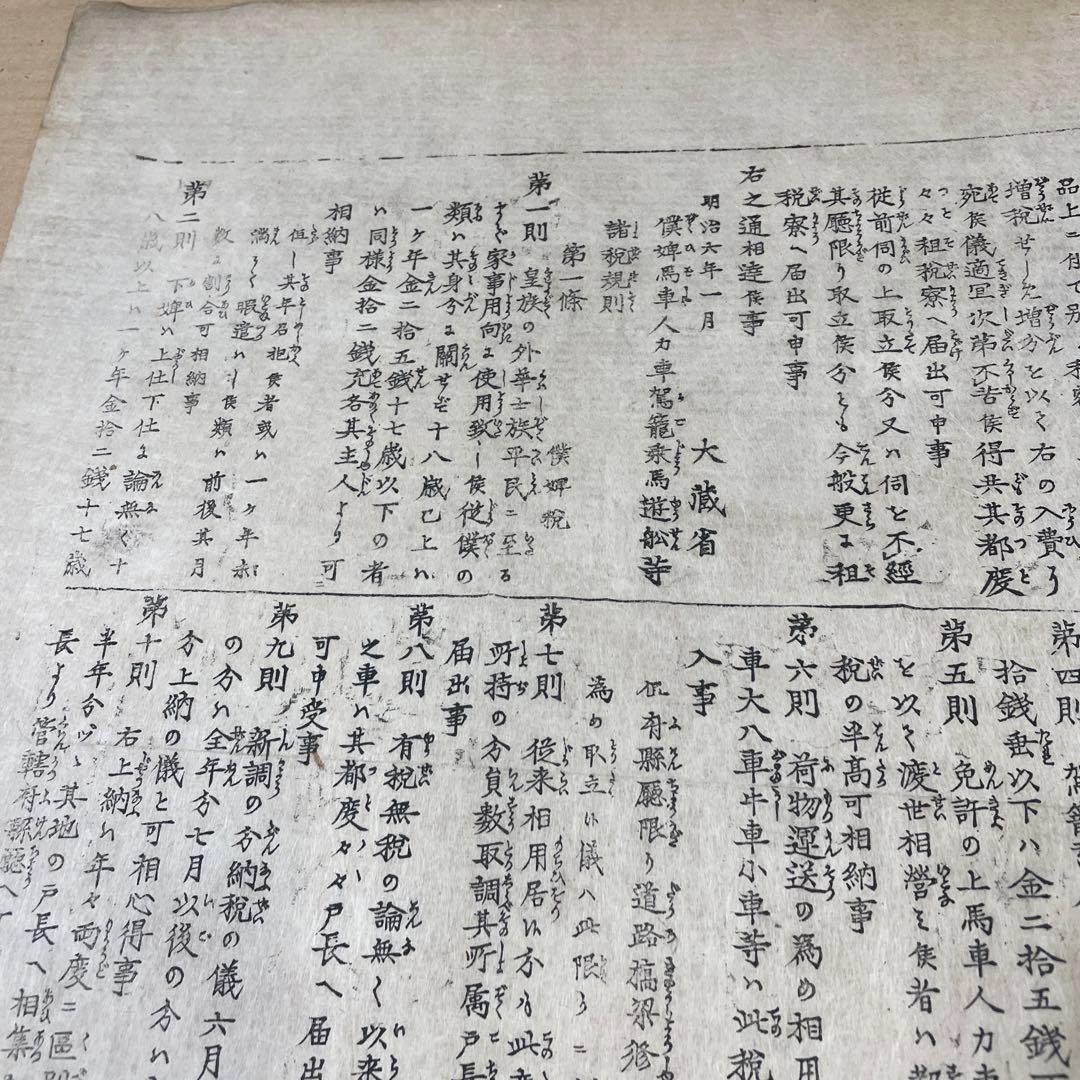 増税せしめ増分を以て右の入費ニ
宛候儀適宜次第不苦候得共其都度
々々租税寮へ届出可申事
従前伺の上取立候分又ハ伺を不經
其廳限り取立候分とも今般更に租
税寮へ届出可申事
右之通相達候事
明治六年一月
大藏省
僕婢馬車人力車駕籠乘馬遊舩等
諸税規則
第一條
僕婢税
第一則 皇族の外華士族平民ニ至る
まで家事用向に使用致し候従僕の
類ハ其身分に關せず十八歳已上ハ
一ヶ年金二拾五銭十七歳以下の者
ハ同様金拾二銭充各其主人より可
相納事
但し其年召抱候者或ハ一ヶ年未
満にて暇遣ハし候類ハ前後其月
数に割合可相納事
第二則 下婢ハ上仕下仕に論無く十
八歳以上ハ一ヶ年金拾二銭十七歳
第四則
拾銭
以下ハ金二拾五銭
第五則 免許の上馬車人力車
を以て渡世相營み候者ハ
税の半高可相納事
第六則 荷物運送の為め相用
車大八車牛車小車等ハ此税
入事
但府縣廳限り道路橋梁修
為め取立候儀ハ此限りニ
第七則 従来相用居候分ハ此
所持の分員数取調其所属戸長
届出事
第八則 有税無税の論無く以来
之車ハ其都度々々戸長へ届出
可申受事
第九則 新調の分納税の儀六月
の分ハ全年分七月以後の分ハ
分上納の儀と可相心得事
第十則 右上納ハ年々両度ニ區別
半年合以て其地の戸長へ相集
長より管轄府縣廳へ